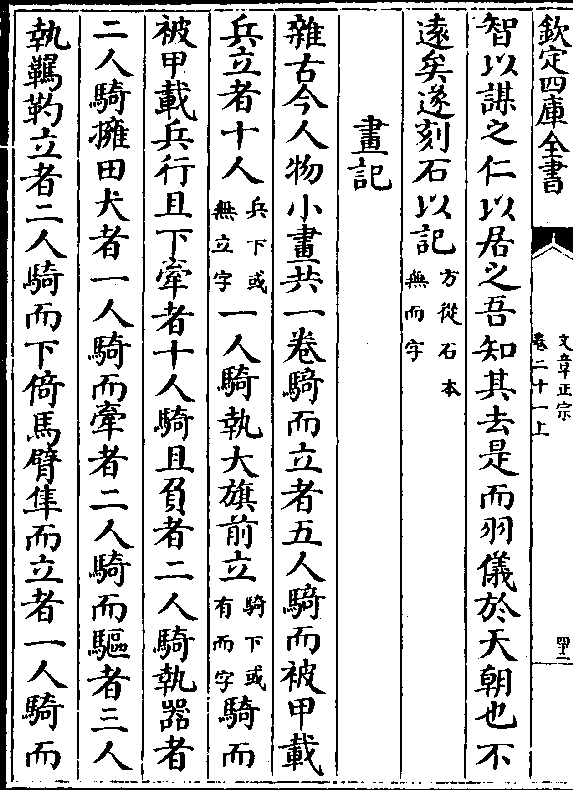 欽定四庫全書
文章正宗
卷二十一上
四十二
智以謀之仁以居之吾知其去是而羽儀於天朝也不
遠矣遂刻石以記方從石本無而字
畫記
雜古今人物小畫共一卷騎而立者五人騎而被甲載
兵立者十人兵下或無立字一人騎執大旗前立騎下或有而字騎而
被甲載兵行且下牽者十人騎且負者二人騎執器者
二人騎擁田犬者一人騎而牽者二人騎而驅者三人
執羈靮立者二人騎而下倚馬臂隼而立者一人騎而